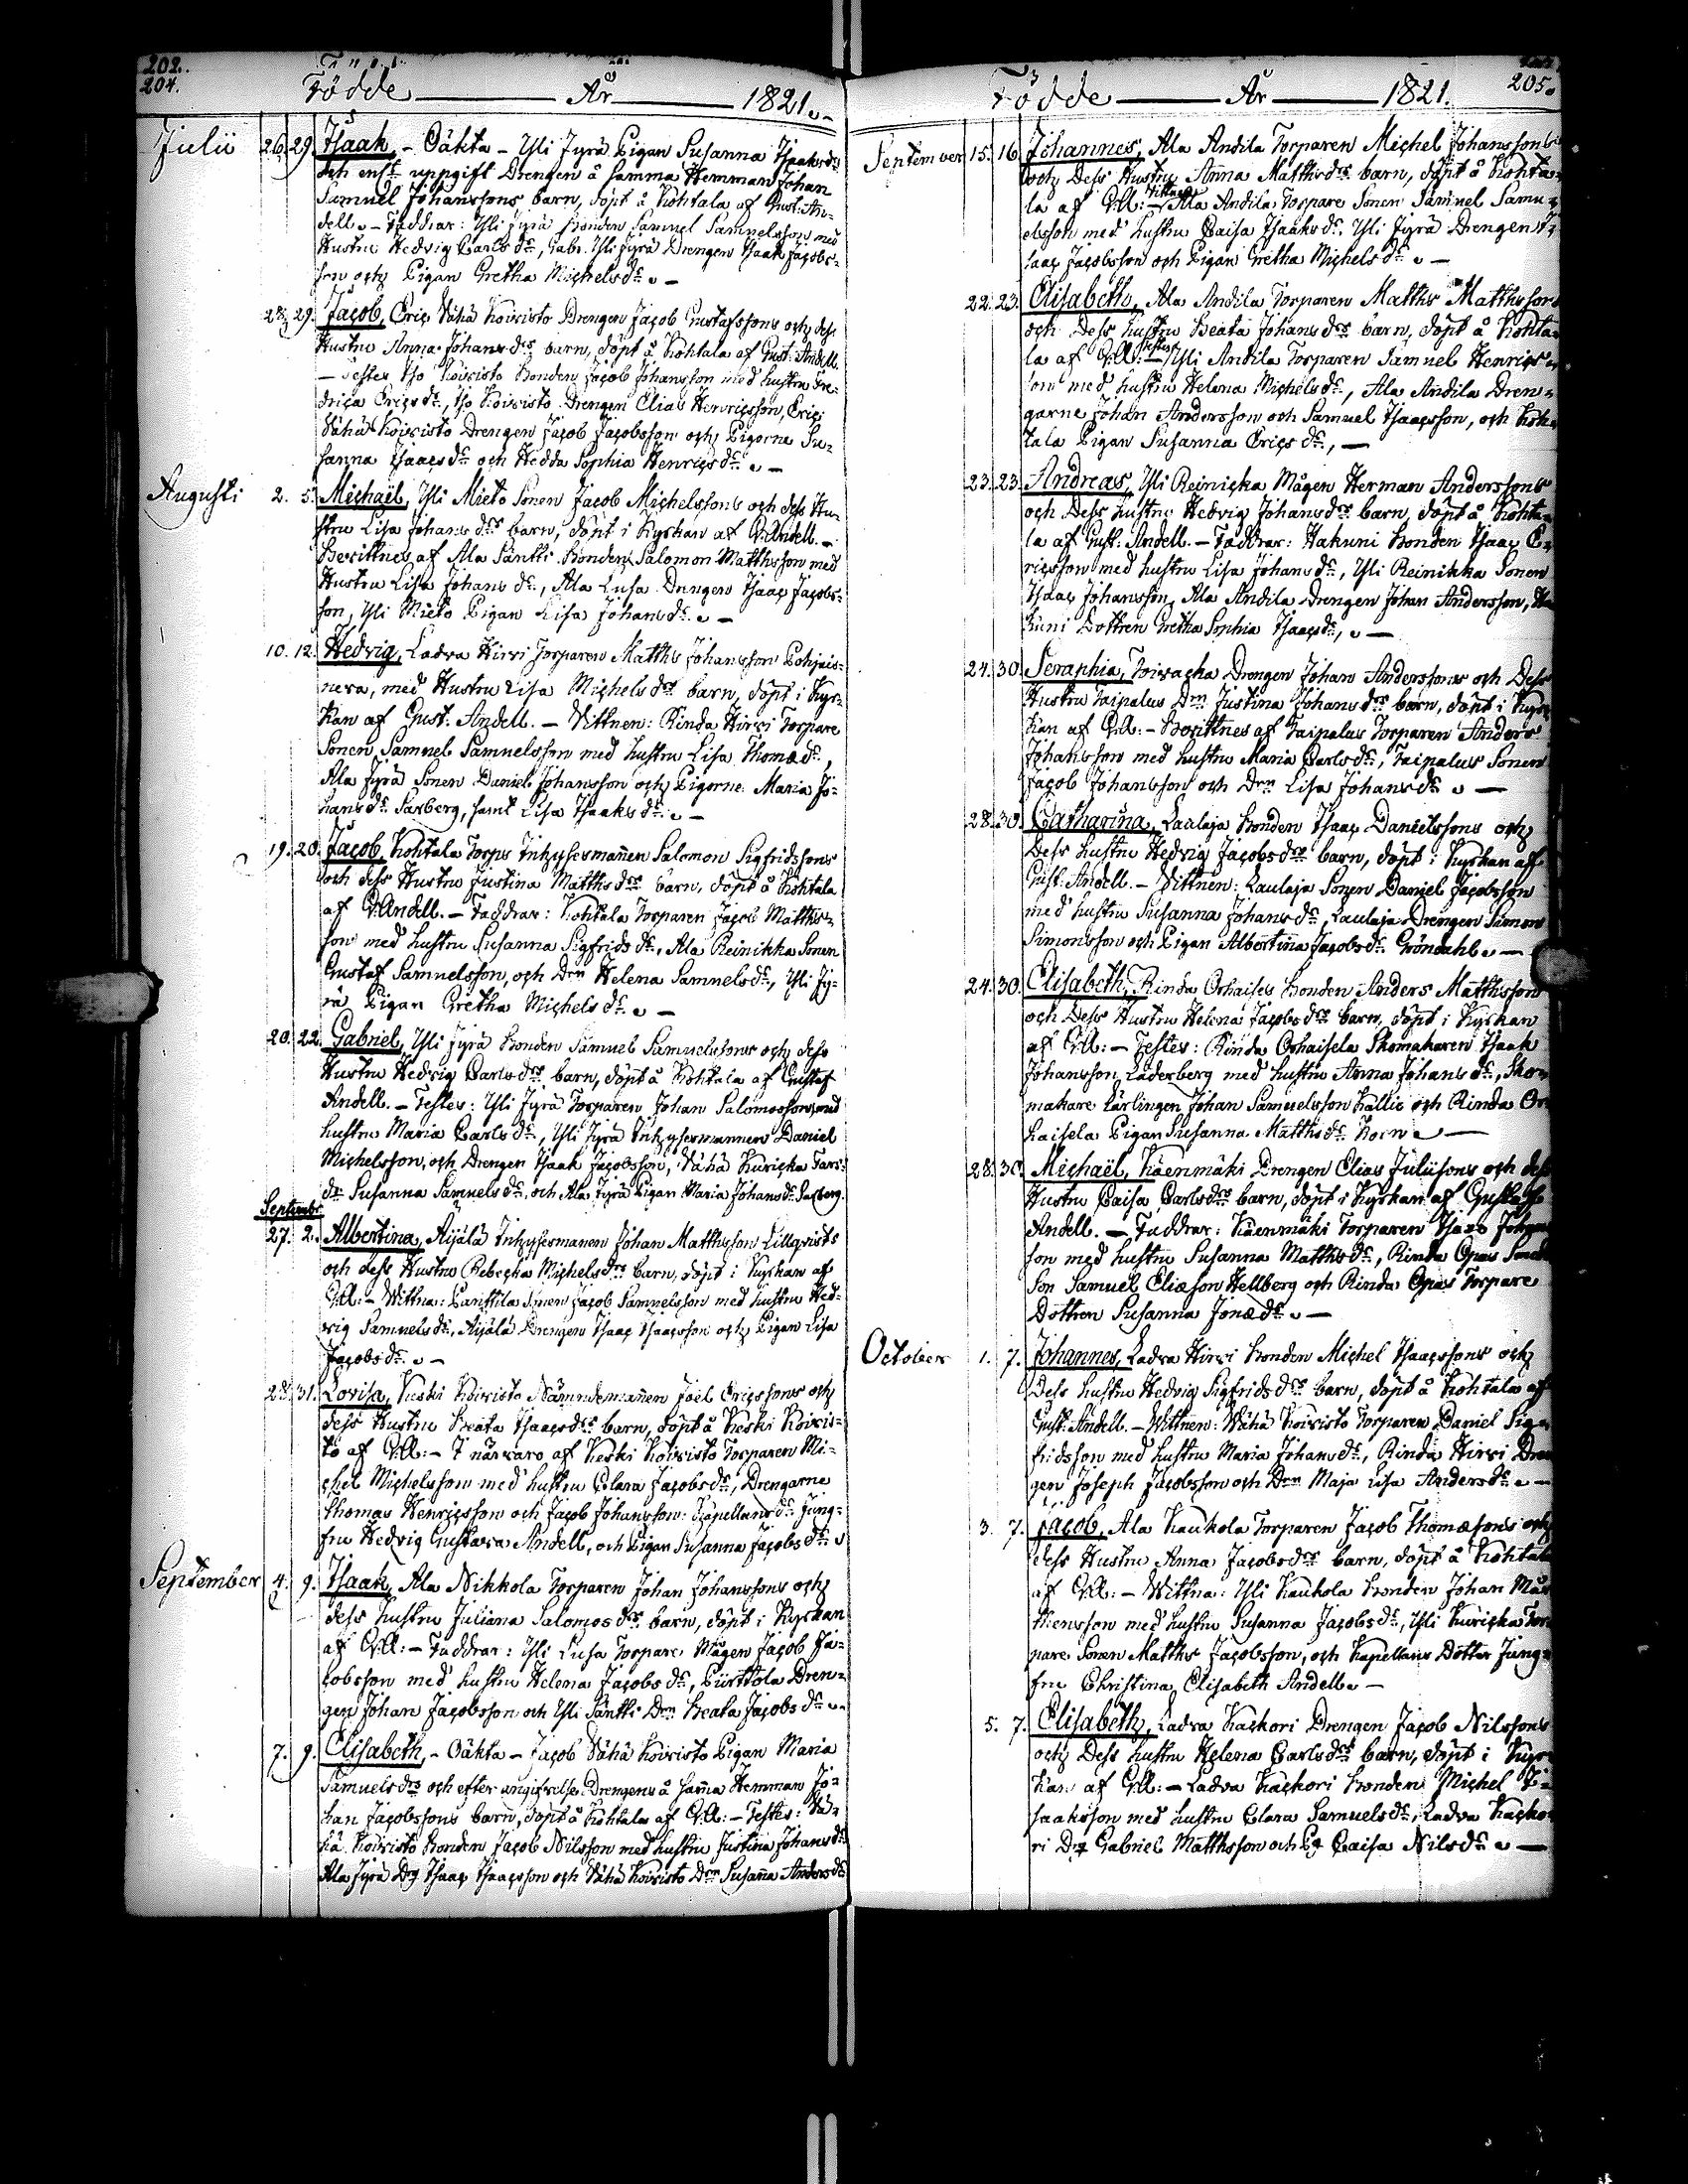 202.
204.
Födde År 1821.
Julii 26. 29. Isaak, - Oäkta - Yli Jyrä Pigan Susanna Isaaksdrs
och enl:t uppgift Drengen å samma Hemman Johan
Samuel Johanssons barn, döpt å Kohtala af Gust: An-
dell. - Faddrar: Yli Jyrä Bonden Samuel Samuelsson med
Hustru Hedvig Carls dr, Gabr. Yli Jyrä Drengen Isaak Jacobs-
son och Pigan Gretha Michels dr. -
28. 29. Jacob, Eric Vähä Koivisto Drengen Jacob Gustafssons och dess
Hustru Anna Johans drs barn, döpt å Kohtala af Gust: Andell.
- Testes Iso Koivisto Bonden Jacob Johansson med hustru Fre-
drica Erics dr, Iso Koivisto Drengen Elias Henricsson, Eric
Vähä Koivisto Drengen Jacob Jacobsson och Pigorne Su-
sanna Isaacs dr och Hedda Sophia Henrics dr. -
Augusti 2. 5. Michaël, Yli Mieto Sonen Jacob Michelssons och dess Hu-
stru Lisa Johans drs barn, döpt i Kyrkan af G:Andell. -
Bevittnes af Ala Säntti Bonden Salomon Matthsson med
Hustru Lisa Johans dr, Ala Lusa Drengen Isaac Jacobs-
son, Yli Mieto Pigan Lisa Johans dr. -
10. 12. Hedvig, Ladva Hirvi Torparen Matths Johansson Pohjais-
neva, med Hustru Lisa Michels drs barn, döpt i Kyr-
kan af Gust: Andell. - Vittnen: Rinda Hirvi Torpare
Sonen Samuel Samuelsson med hustru Lisa Thomæ dr,
Ala Jyrä Sonen Daniel Johansson och Pigorne: Maria Jo-
hans dr Saxberg, samt Lisa Isaaks dr. -
19. 20. Jacob, Kohtala Torps Inhysesmañen Salomon Sigfridssons
och dess Hustru Justina Matths drs barn, döpt å Kohtala
af G:Andell. - Faddrar: Kohtala Torparen Jacob Matths-
son med hustru Susanna Sigfrids dr, Ala Reinikka Sonen
Gustaf Samuelsson, och Drn Helena Samuels dr, Yli Jy-
rä Pigan Gretha Michels dr. -
20. 22. Gabriel, Yli Jyrä Bonden Samuel Samuelssons och dess
Hustru Hedvig Carls drs barn, döpt å Kohtala af Gustaf
Andell. - Testes: Yli Jyrä Torparen Johan Salomosson med
hustru Maria Carls dr, Yli Jyrä Inhysesmannen Daniel
Michelsson, och Drengen Isaak Jacobsson, Vähä Kuricka Tors:
dr Susanna Samuels dr, och Ala Jyrä Pigan Maria Johans dr Saxberg.
Septembr
27. 2. Albertina, Äijälä Inhysesmanen Johan Matthsson Lillqvists
och dess Hustru Rebecka Michels drs barn, döpt i Kyrkan af
G:A: - Wittna: Panttila Sonen Jacob Samuelsson med hustru Hed-
vig Samuels dr, Äijälä Drengen Isaac Isaacsson och Pigan Lisa
Jacobs dr. -
28. 31. Lovisa, Keski Koivisto Nämndemañen Joël Ericssons och
dess Hustru Beata Isaacs drs barn, döpt å Keski Koivis-
to af G:A: - I närvaro af Keski Koivisto Torparen Mi-
chel Michelsson med hustru Clara Jacobs dr, Drengarne
Thomas Henricsson och Jacob Johansson: Kapellans dr Jung-
fru Hedvig Gustava Andell, och Pigan Susanna Jacobs dr.
September 4. 9. Isaak, Ala Nikkola Torparen Johan Johanssons och
dess hustru Juliana Salomos drs barn, döpt i Kyrkan
af G:A: - Faddrar: Yli Lusa Torpare Mågen Jacob Ja-
cobsson med hustru Helena Jacobs dr, Piirttola Dren-
gen Johan Jacobsson och Yli Säntti Drn Beata Jacobs dr.
7. 9. Elisabeth, - Oäkta - Jacob Vähä Koivisto Pigan Maria
Samuels drs och efter angifvelse Drengens å sama Hemman Jo-
han Jacobssons barn, döpt å Kohtala af G:A: - Testes: Vä-
hä Koivisto Bonden Jacob Nilsson med hustru Justina Johans dr
Ala Jyrä Drg Isaac Isaacsson och Vähä Koivisto Drn Susana Anders dr
Födde År 1821. 205.
September 15. 16. Johannes, Ala Andila Torparen Michel Johanssons
och Dess Hustru Anna Matths drs barn, döpt å Kohta-
la af G:A: - Vittna: Ala Andila Torpare Sonen Samuel Samu-
elsson med hustru Caisa Isaaks dr. Yli Jyrä Drengen I-
saac Jacobsson och Pigan Gretha Michels dr. -
22. 23. Elisabeth, Ala Andila Torparen Matths Matthssons
och Dess hustru Beata Johans drs barn, döpt å Kohta-
la af G:A: - Testes: Yli Andila Torparen Samuel Henrics-
son med hustru Helena Michels dr, Ala Andila Dren-
garne Johan Andersson och Samuel Isaacsson, och Koh-
tala Pigan Susanna Erics dr, -
23. 23. Andreas, Yli Reinicka Mågen Herman Anderssons
och Dess hustru Hedvig Johans drs barn, döpt å Kohta-
la af Gust: Andell. - Faddrar: Hakuni Bonden Isaac E-
ricsson med hustru Lisa Johans dr, Yli Reinikka Sonen
Isaac Johansson, Ala Andila Drengen Johan Andersson, Ha
kuni Dottren Gretha Sophia Isaacs dr, -
24. 30. Seraphia, Koivacka Drengen Johan Anderssons och Dess
Hustru Taipalus Drn Justina Johans drs barn, döpt i Kyr-
kan af G:A: - Bevittnes af Taipalus Torparen Anders
Johansson med hustru Maria Carls dr, Taipalus Sonen
Jacob Johansson och Drn Lisa Johans dr. -
28. 30. Catharina, Laulaja Bonden Isaac Danielssons och
Dess hustru Hedvig Jacobs drs barn, döpt i Kyrkan af
Gust: Andell. - Vittnen: Laulaja Sonen Daniel Jacobsson
med hustru Susanna Johans dr, Laulaja Drengen Simon
Simonsson och Pigan Albertina Jacobs dr Gröndahl. -
24. 30. Elisabeth, Rinda Orhaisels Bonden Anders Matthsson
och Dess Hustru Helena Jacobs drs barn, döpt i Kyrkan
af G:A: - Testes: Rinda Orhaisela Skomakaren Isaak
Johansson Läderberg med hustru Anna Johans dr, Sko-
makare Lärlingen Johan Samuelsson Källic och Rinda Or-
haisela Pigan Susanna Matths dr Horn -
28. 30. Michaël, Käenmäki Drengen Elias Juliisons och dess
Hustru Caisa Carls drs barn, döpt i Kyrkan af Gustaf
Andell. - Faddrar: Käenmäki Torparen Isaac Johans
son med hustru Susanna Matths dr, Rinda Opas
Son Samuel Eliæson Hellberg och Rinda Opas Torpare
Dottren Susanna Jonæ dr. -
October 1. 7. Johannes, Ladva Hirvi Bonden Michel Isaacssons och
Dess hustru Hedvig Sigfrids drs barn, döpt å Kohtala af
Gust: Andell. - Wittnen: Wähä Koivisto Torparen Daniel Sig-
fridsson med hustru Maria Johans dr, Rinda Hirvi Dren
gen Joseph Jacobsson och Drn Maja Lisa Anders dr. -
3. 7. Jacob, Ala Kaukola Torparen Jacob Thomæsons och
dess Hustru Anna Jacobs drs barn, döpt å Kohtala
af G:A: - Wittna: Yli Kaukola Bonden Johan Mår
tiensson med hustru Susanna Jacobs dr, Yli Kuricka Tor
pare Sonen Matths Jacobsson, och Kapellans Dotter Jung-
fru Christina Elisabeth Andell. -
5. 7. Elisabeth, Ladva Kackori Drengen Jacob Nilssons
och Dess hustru Helena Carls drs barn, döpt i Kyr-
kan af G:A: - Ladva Kackori Bonden Michel I-
saaksson med hustru Clara Samuels dr, Ladva Kacko-
ri Drg Gabriel Matthsson och Pg Caisa Nils dr. -